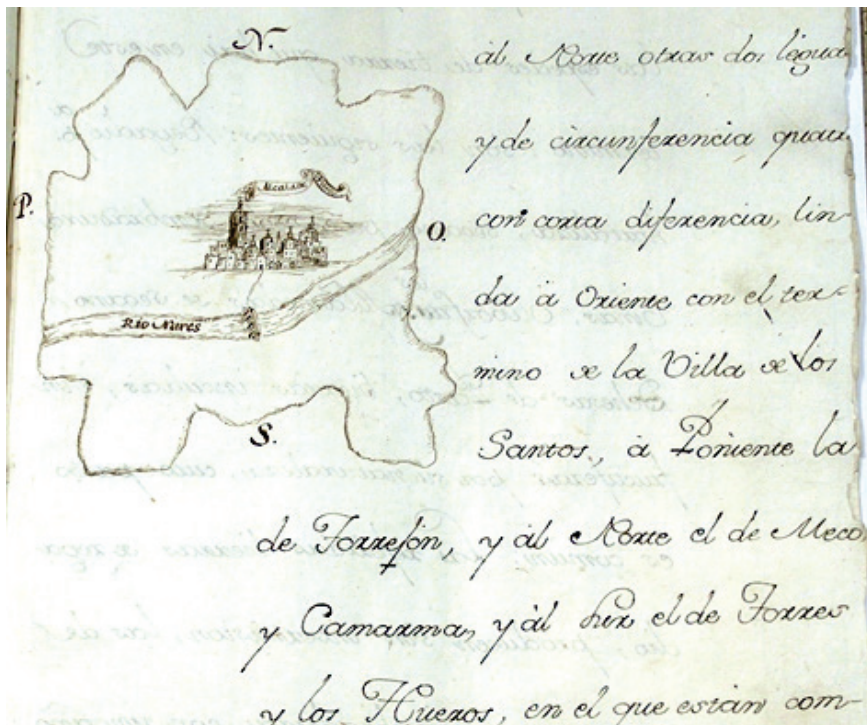 N.
P.
O.
S.
Alcalá
Río Nares
al Norte otras dos legua
y de circunferencia quatr
con corta diferencia, lin-
da à Oriente con el ter-
mino de la Villa de los
Santos, à Poniente la
de Torrejón, y al Norte el de Meco
y Camarma, y al Sur el de Torres
y los Hueros, en el que están com-